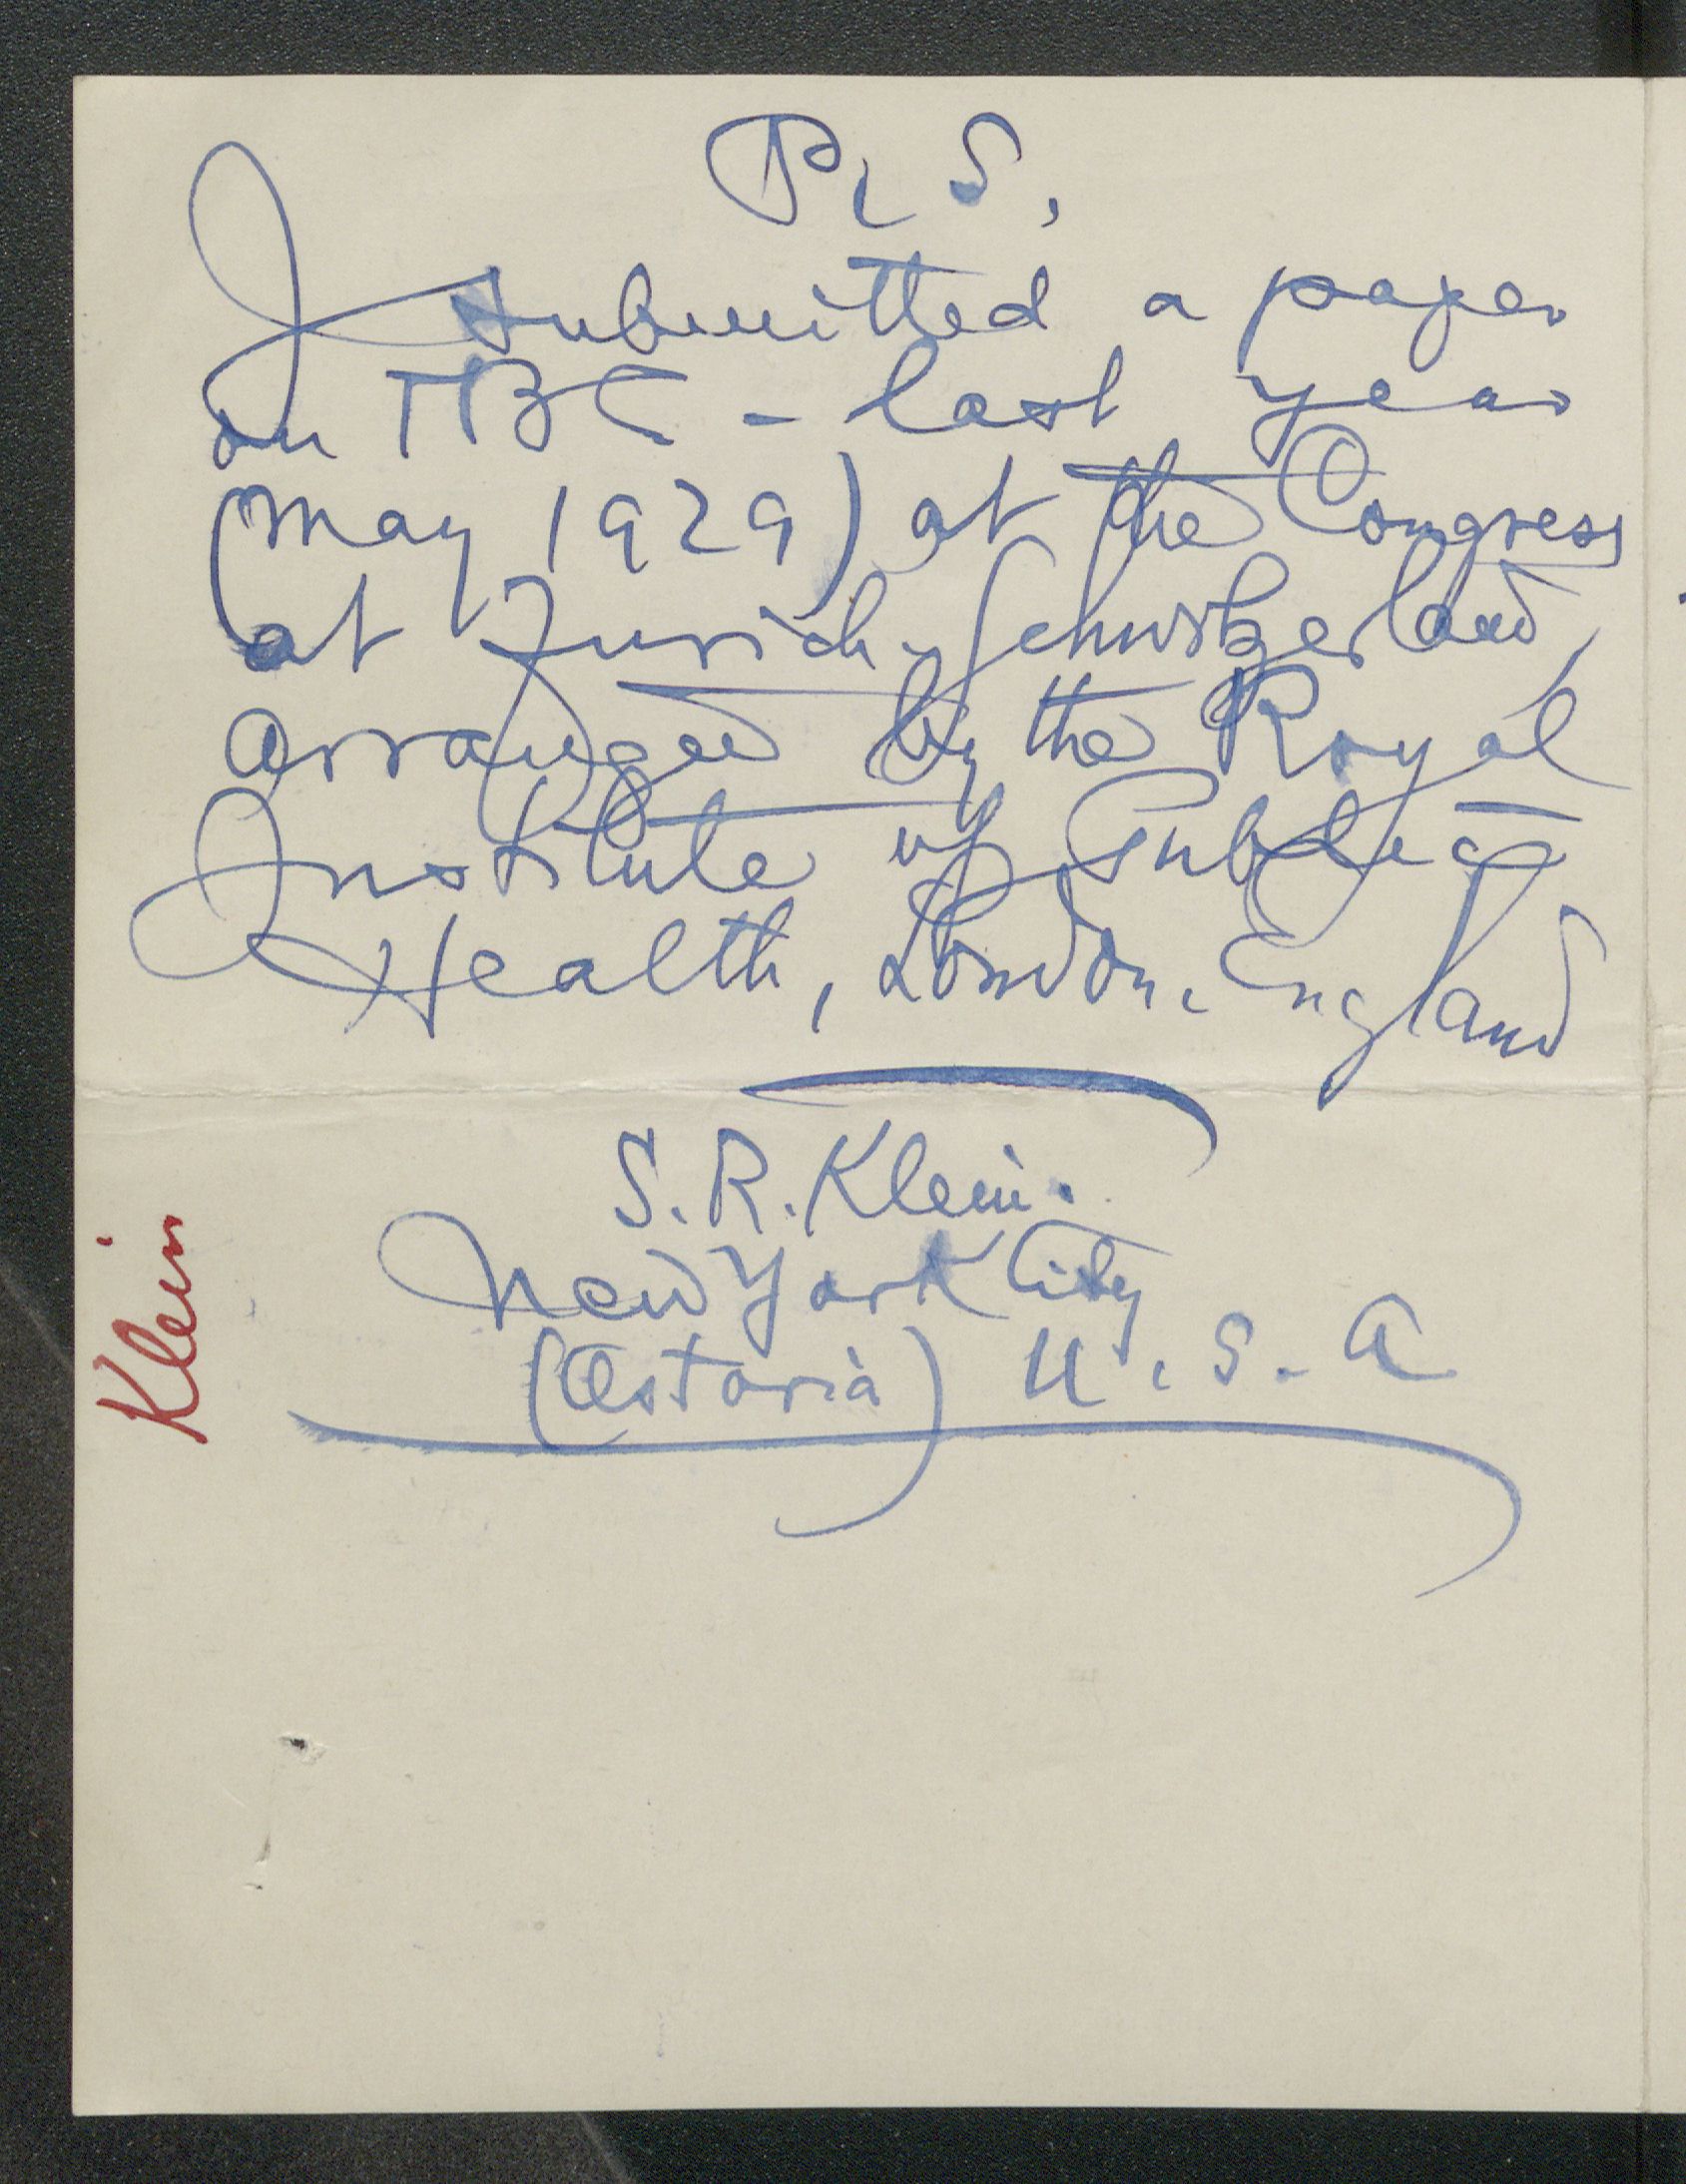 P. S.
I submitted a paper
on TBC - last year
(May 1929) at the Congress
at Zurich - Schwitzerland,
arranged by the Royal
Institute of Public
Health, London, England
S. R. Klein.
New York City
(Astoria) U. S. A
Klein